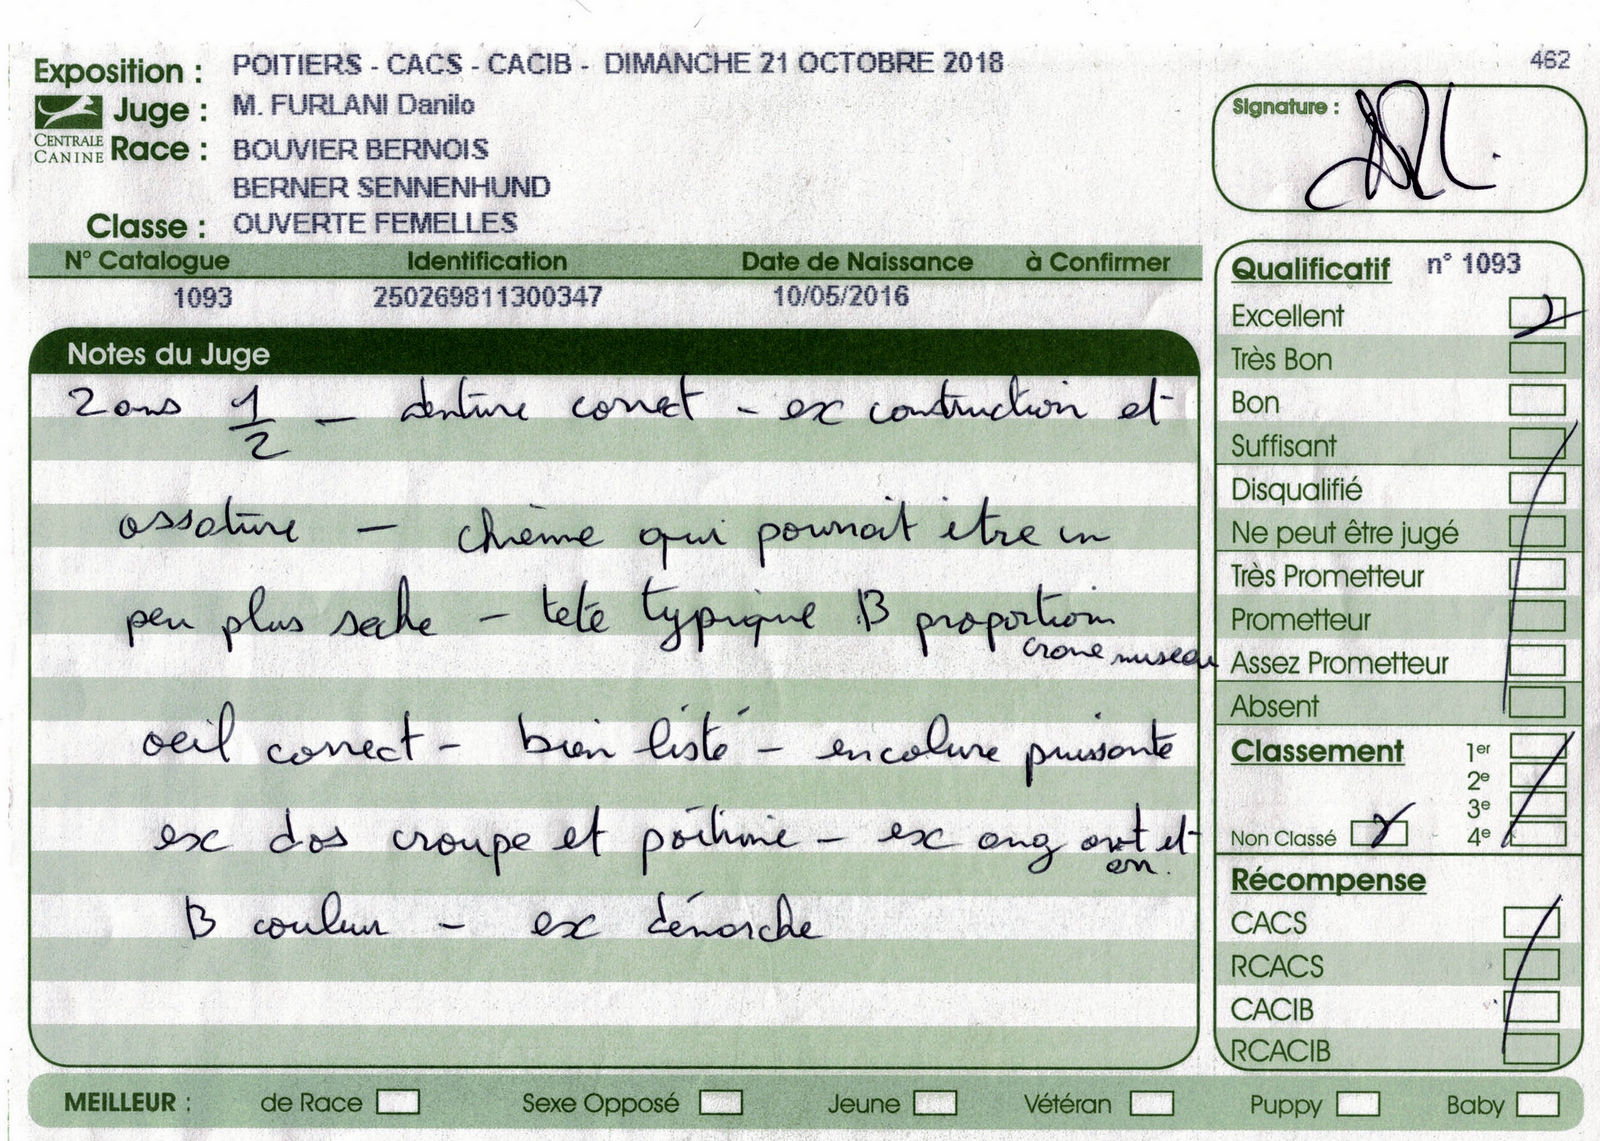 Exposition : POITIERS - CACS - CACIB - DIMANCHE 21 OCTOBRE 2018
462
Juge : M. FURLANI Danilo
CENTRALE CANINE
Race : BOUVIER BERNOIS
BERNER SENNENHUND
Classe : OUVERTE FEMELLES
Signature :
N° Catalogue Identification Date de Naissance à Confirmer
1093 250269811300347 10/05/2016
Notes du Juge
2 ans 1/2 - denture correct - ex construction et
ossature - chienne qui pourrait être un
peu plus seche - tete typique B proportion
crane museau
oeil correct - bien listé - encolure puissante
ex dos croupe et poitrine - ex ang avt et
arr.
B couleur - ex démarche
Qualificatif n° 1093
Excellent
Très Bon
Bon
Suffisant
Disqualifié
Ne peut être jugé
Très Prometteur
Prometteur
Assez Prometteur
Absent
Classement 1er
2e
3e
Non Classé 4e
Récompense
CACS
RCACS
CACIB
RCACIB
MEILLEUR : de Race Sexe Opposé Jeune Vétéran Puppy Baby